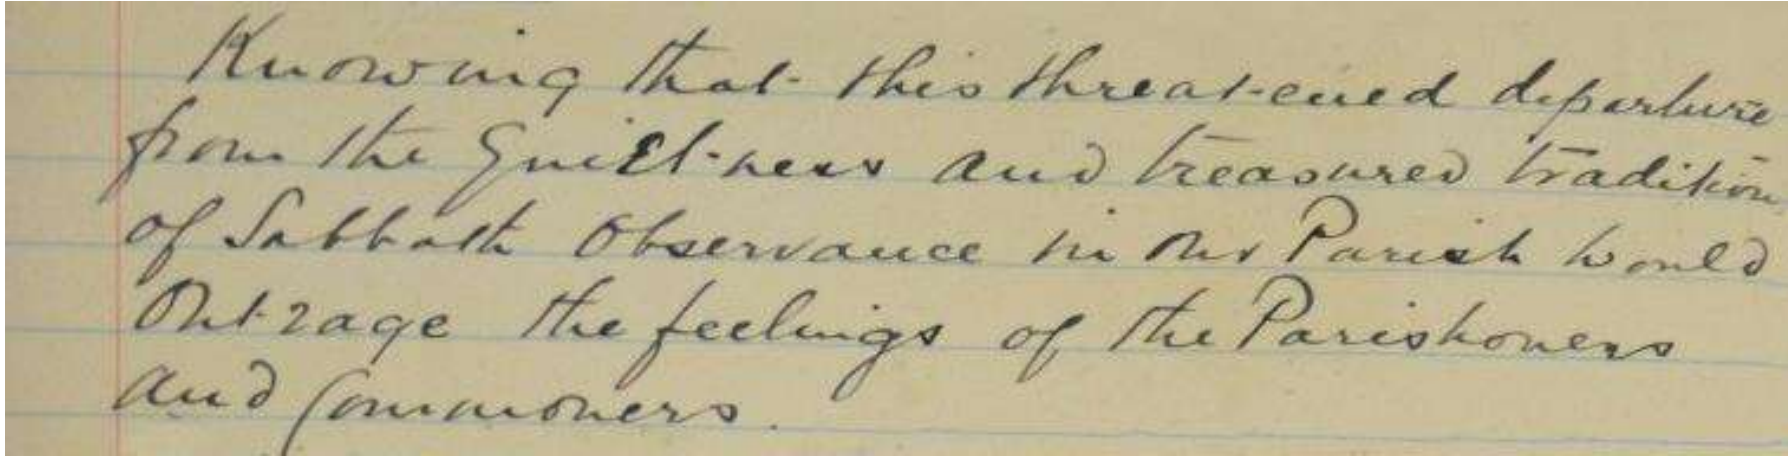 Knowing that this threatened departure
from the Quietness and treasured tradition
of Sabbath Observance in our Parish would
Outrage the feelings of the Parishoners
and Commoners.